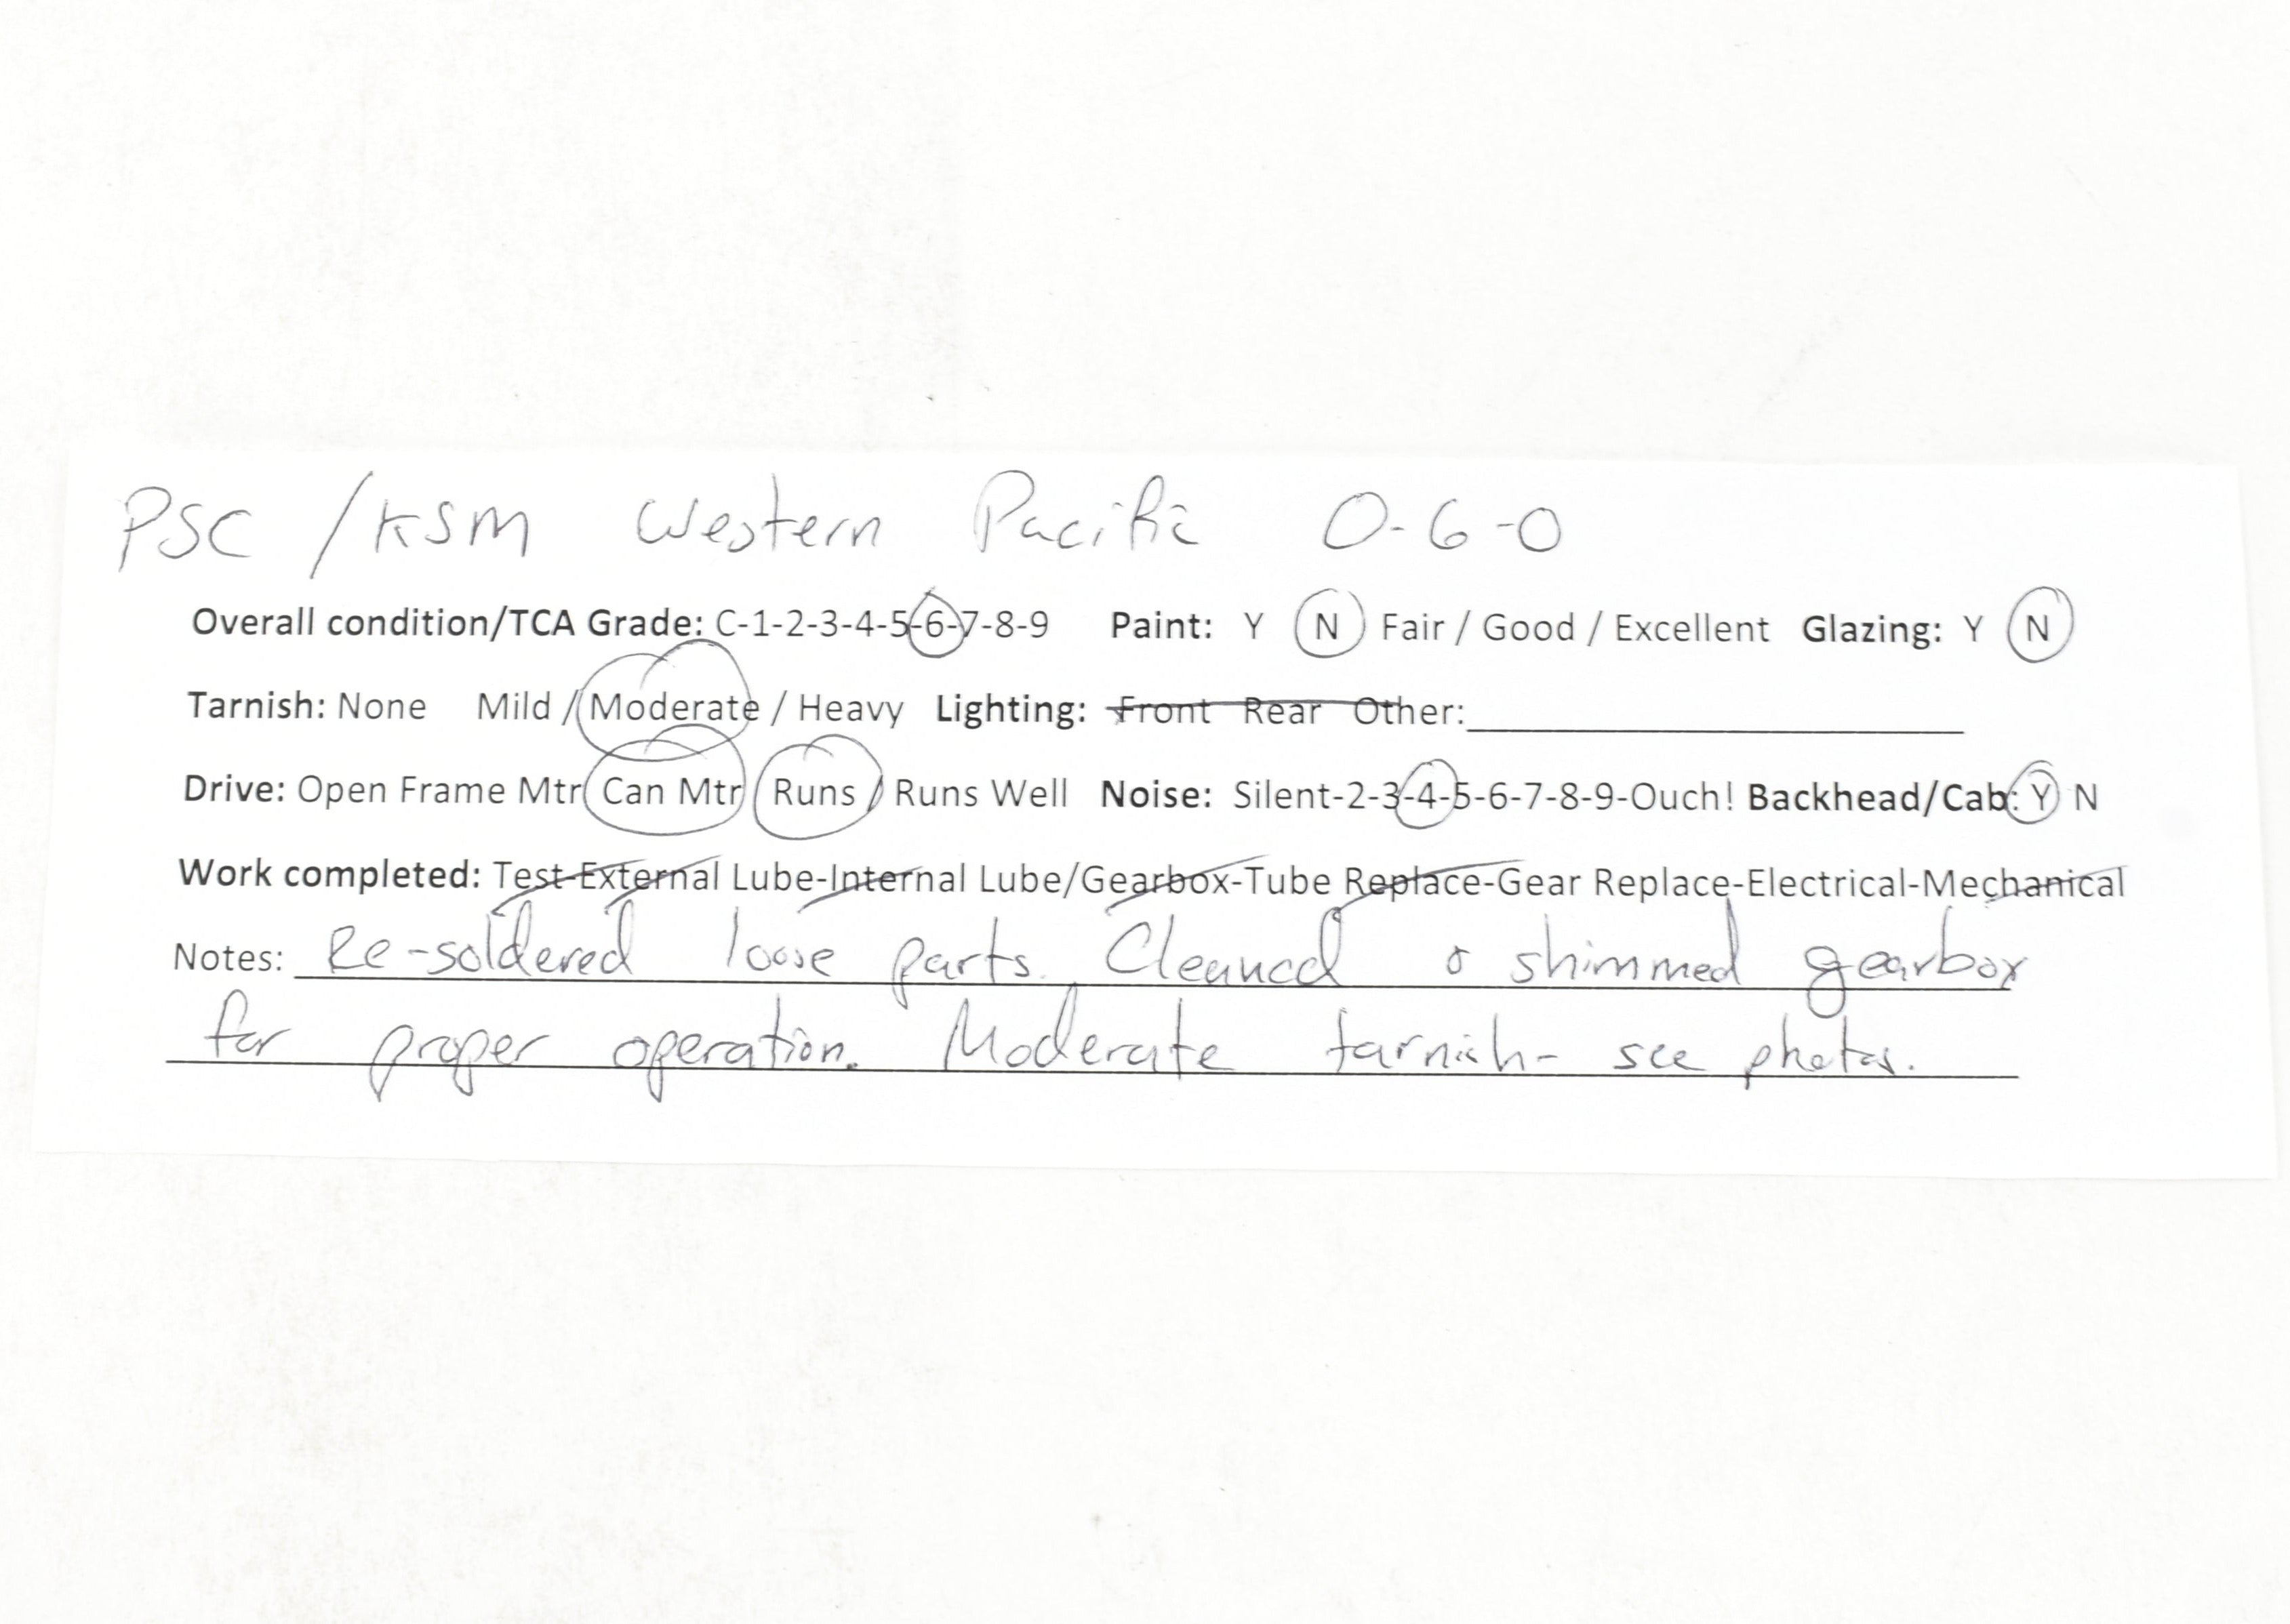 PSC / KSM Western Pacific 0-6-0
Overall condition/TCA Grade: C-1-2-3-4-5-6-7-8-9 Paint: Y N Fair / Good / Excellent Glazing: Y N
Tarnish: None Mild / Moderate / Heavy Lighting: Front Rear Other:
Drive: Open Frame Mtr Can Mtr / Runs / Runs Well Noise: Silent-2-3-4-5-6-7-8-9-Ouch! Backhead/Cab: Y N
Work completed: Test-External Lube-Internal Lube/Gearbox-Tube Replace-Gear Replace-Electrical-Mechanical
Notes: Re-soldered loose parts. Cleaned & shimmed gearbox
for proper operation. Moderate tarnish- see photos.